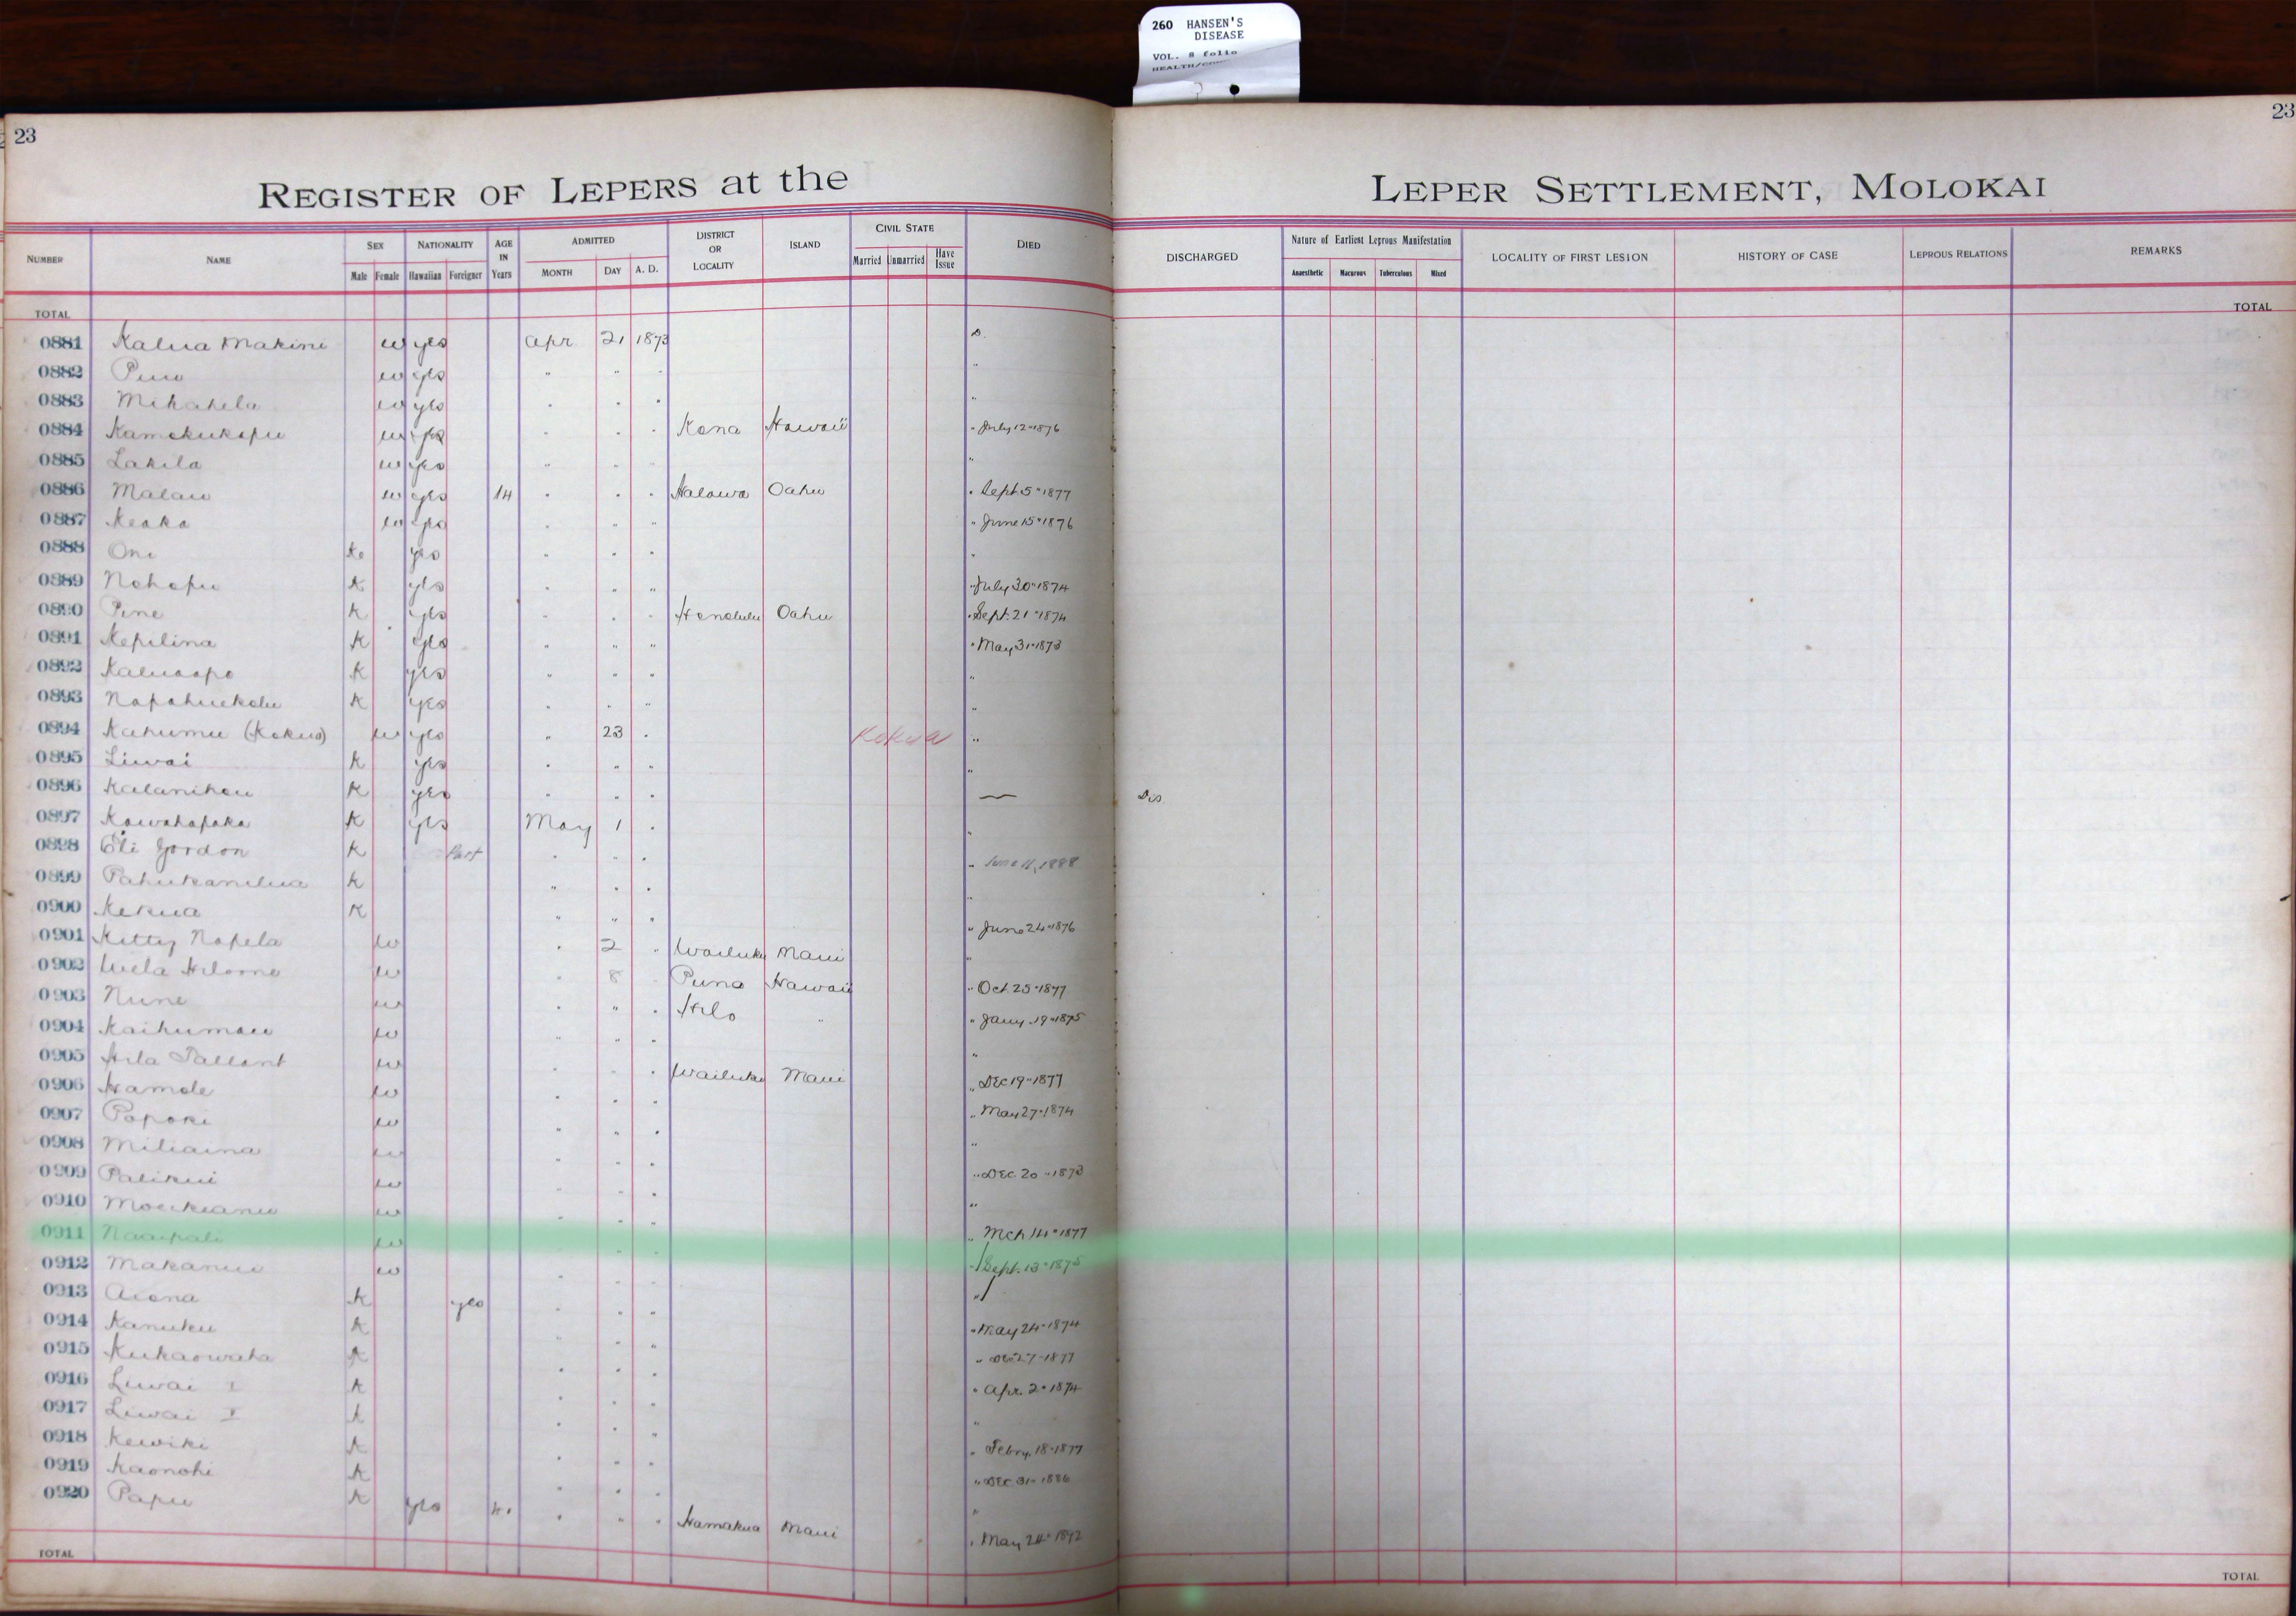 260 HANSEN'S
DISEASE
VOL. 8 folio
23
23
REGISTER OF LEPERS at the LEPER SETTLEMENT, MOLOKAI
NUMBER NAME SEX Male Female NATIONALITY Hawaiian Foreigner AGE IN Years ADMITTED MONTH DAY A. D. DISTRICT OR LOCALITY ISLAND CIVIL STATE Married Unmarried Have Issue DIED DISCHARGED Nature of Earliest Leprous Manifestation Anaesthetic Macurous Tuberculous Mixed LOCALITY OF FIRST LESION HISTORY OF CASE LEPROUS RELATIONS REMARKS
TOTAL TOTAL
0881 Kalua Makini w yes Apr 21 1873 D.
0882 w yes " " " "
0883 Mikahela w yes " " " "
0884 Kamokukapu w yes " " " Kona Hawaii " July 12" 1876
0885 Lakila w yes " " " "
0886 Malau w yes 14 " " " Halawa Oahu " Sept. 5" 1877
0887 Keaka w yes " " " " June 15" 1876
0888 Oni K yes " " " "
0889 Nohopu K yes " " " " July 30" 1874
0890 Pine K yes " " " Honolulu Oahu " Sept. 21" 1874
0891 Kepilina K yes " " " " May 31" 1873
0892 Kaluaopo K yes " " " "
0893 Napahuekolu K yes " " " "
0894 Kahumu (Kokua) w yes " 23 " Kokua "
0895 Liwai K yes " " " "
0896 Kalanihou K yes " " " — Dis
0897 Kawahapaka K yes May 1 " "
0898 Eli Gordon K Part " " " " June 11, 1888
0899 Pahukanilua K " " " "
0900 Kekua K " " " " June 24" 1876
0901 Kitty Napela w " 2 " Wailuku Maui "
0902 w " 8 " Puna Hawaii " Oct. 25" 1877
0903 Nune w " " " Hilo " " Jany. 19" 1875
0904 Kaihumau w " " " "
0905 Hila Tallant w " " " Wailuku Maui " Dec 19" 1877
0906 Hamole w " " " " May 27" 1874
0907 Papoki w " " " "
0908 Miliaina w " " " " Dec. 20" 1873
0909 Palikui w " " " "
0910 w " " " " Mch 14" 1877
0911 Naaipali w " " " " Sept. 13" 1875
0912 Makanui w " " " "
0913 Aiona K yes " " " " May 24" 1874
0914 Kanuku K " " " " Dec 27" 1877
0915 Kukaowaha K " " " " Apr. 2" 1874
0916 Liwai I K " " " "
0917 Liwai K " " " " Febry. 18" 1877
0918 Kewiki K " " " " Dec. 31" 1886
0919 Kaonohi K " " " "
0920 Papu K yes " " " Hamakua Maui " May 24" 1892
TOTAL TOTAL